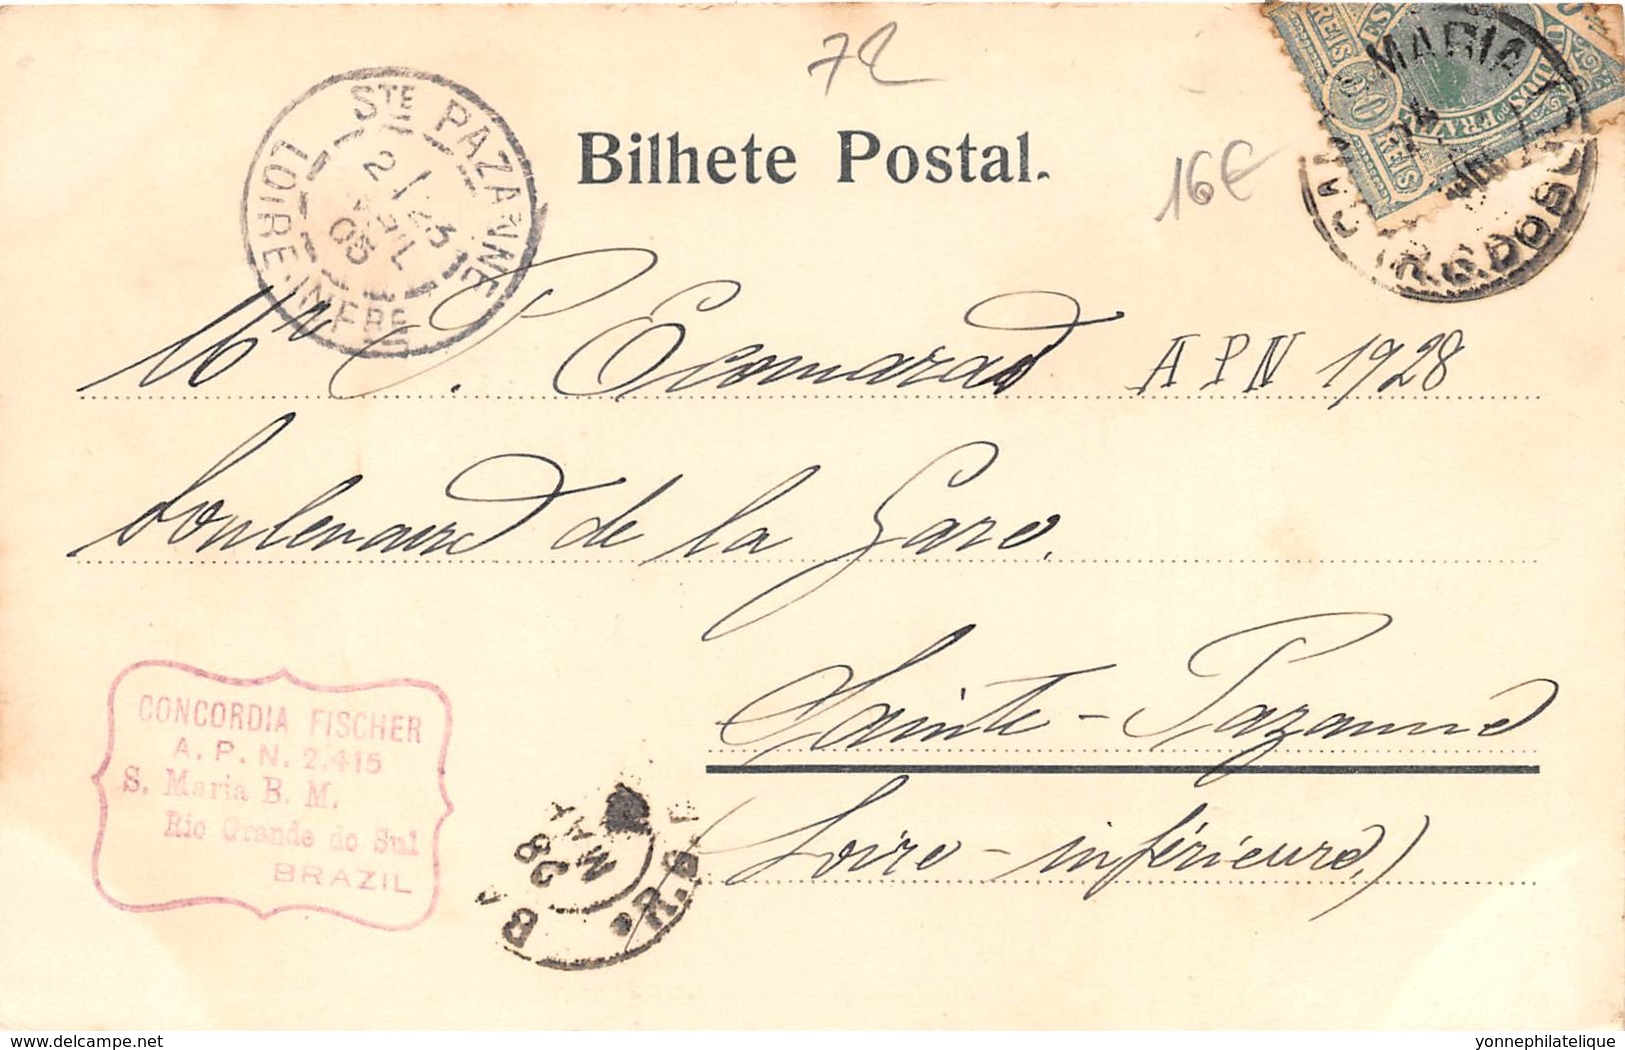 72
Bilhete Postal.
16€
STE PAZANNE
LOIRE-INFRE
2
AVRIL
05
MARIA
R.G.DOSUL
50
Mr P. Ecomarad APN 1928
boulevard de la Gare.
Sainte-Pazanne
(Loire-inférieure)
CONCORDIA FISCHER
A. P. N. 2.415
S. Maria B. M.
Rio Grande do Sul
BRAZIL
28
MAR
R.G
delcampe.net
yonnephilatelique